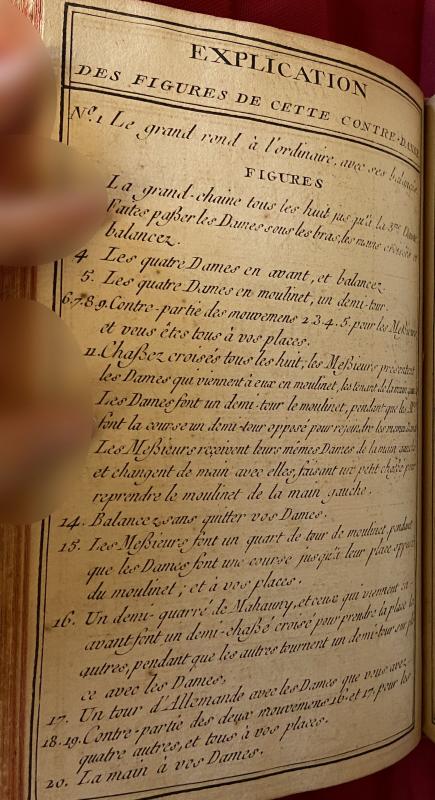 EXPLICATION
DES FIGURES DE CETTE CONTRE-DANSE
No. 1 Le grand rond à l'ordinaire, avec ses
FIGURES
La grand-chaine tous les huit jusqu'à la 3me
Faites paßer les Dames sous les bras, les mains
balancez.
4 Les quatre Dames en avant, et balancez.
5. Les quatre Dames en moulinet, un demi-tour.
6.7.8.9. Contre-partie des mouvemens 2.3.4.5. pour les
et vous êtes tous à vos places.
11. Chaßez croisés tous les huit; les Meßieurs
les Dames qui viennent à eux en moulinet, les tenant de la main
Les Dames font un demi-tour le moulinet, pendant que les
font la course un demi-tour opposé pour rejoindre les
Les Meßieurs reçoivent leurs mêmes Dames de la main
et changent de main avec elles, faisant un petit chaßé pour
reprendre le moulinet de la main gauche.
14. Balancez sans quitter vos Dames.
15. Les Meßieurs font un quart de tour de moulinet pendant
que les Dames font une course jusqu'à leur place
du moulinet; et à vos places.
16. Un demi-quarré de Mahauny, et ceux qui viennent en
avant font un demi-chaßé croisé pour prendre la place
autres, pendant que les autres tournent un demi-tour sur
ce avec les Dames.
17. Un tour d'Allemande avec les Dames que vous avez.
18.19. Contre-partie des deux mouvemens 16. et 17. pour les
quatre autres, et tous à vos places.
20. La main à vos Dames.